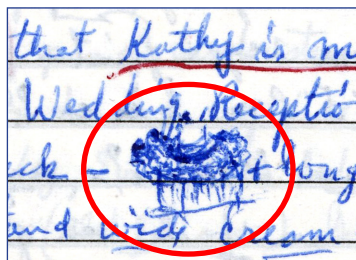 that Kathy is m
Wedding Receptio
ck - ong
and wide cream